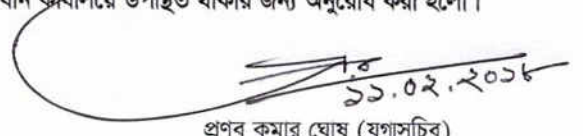 কার্যালয়ে উপস্থিত থাকার জন্য অনুরোধ করা হলো।
১১.০২.২০১৮
প্রণব কুমার ঘোষ (যুগ্মসচিব)